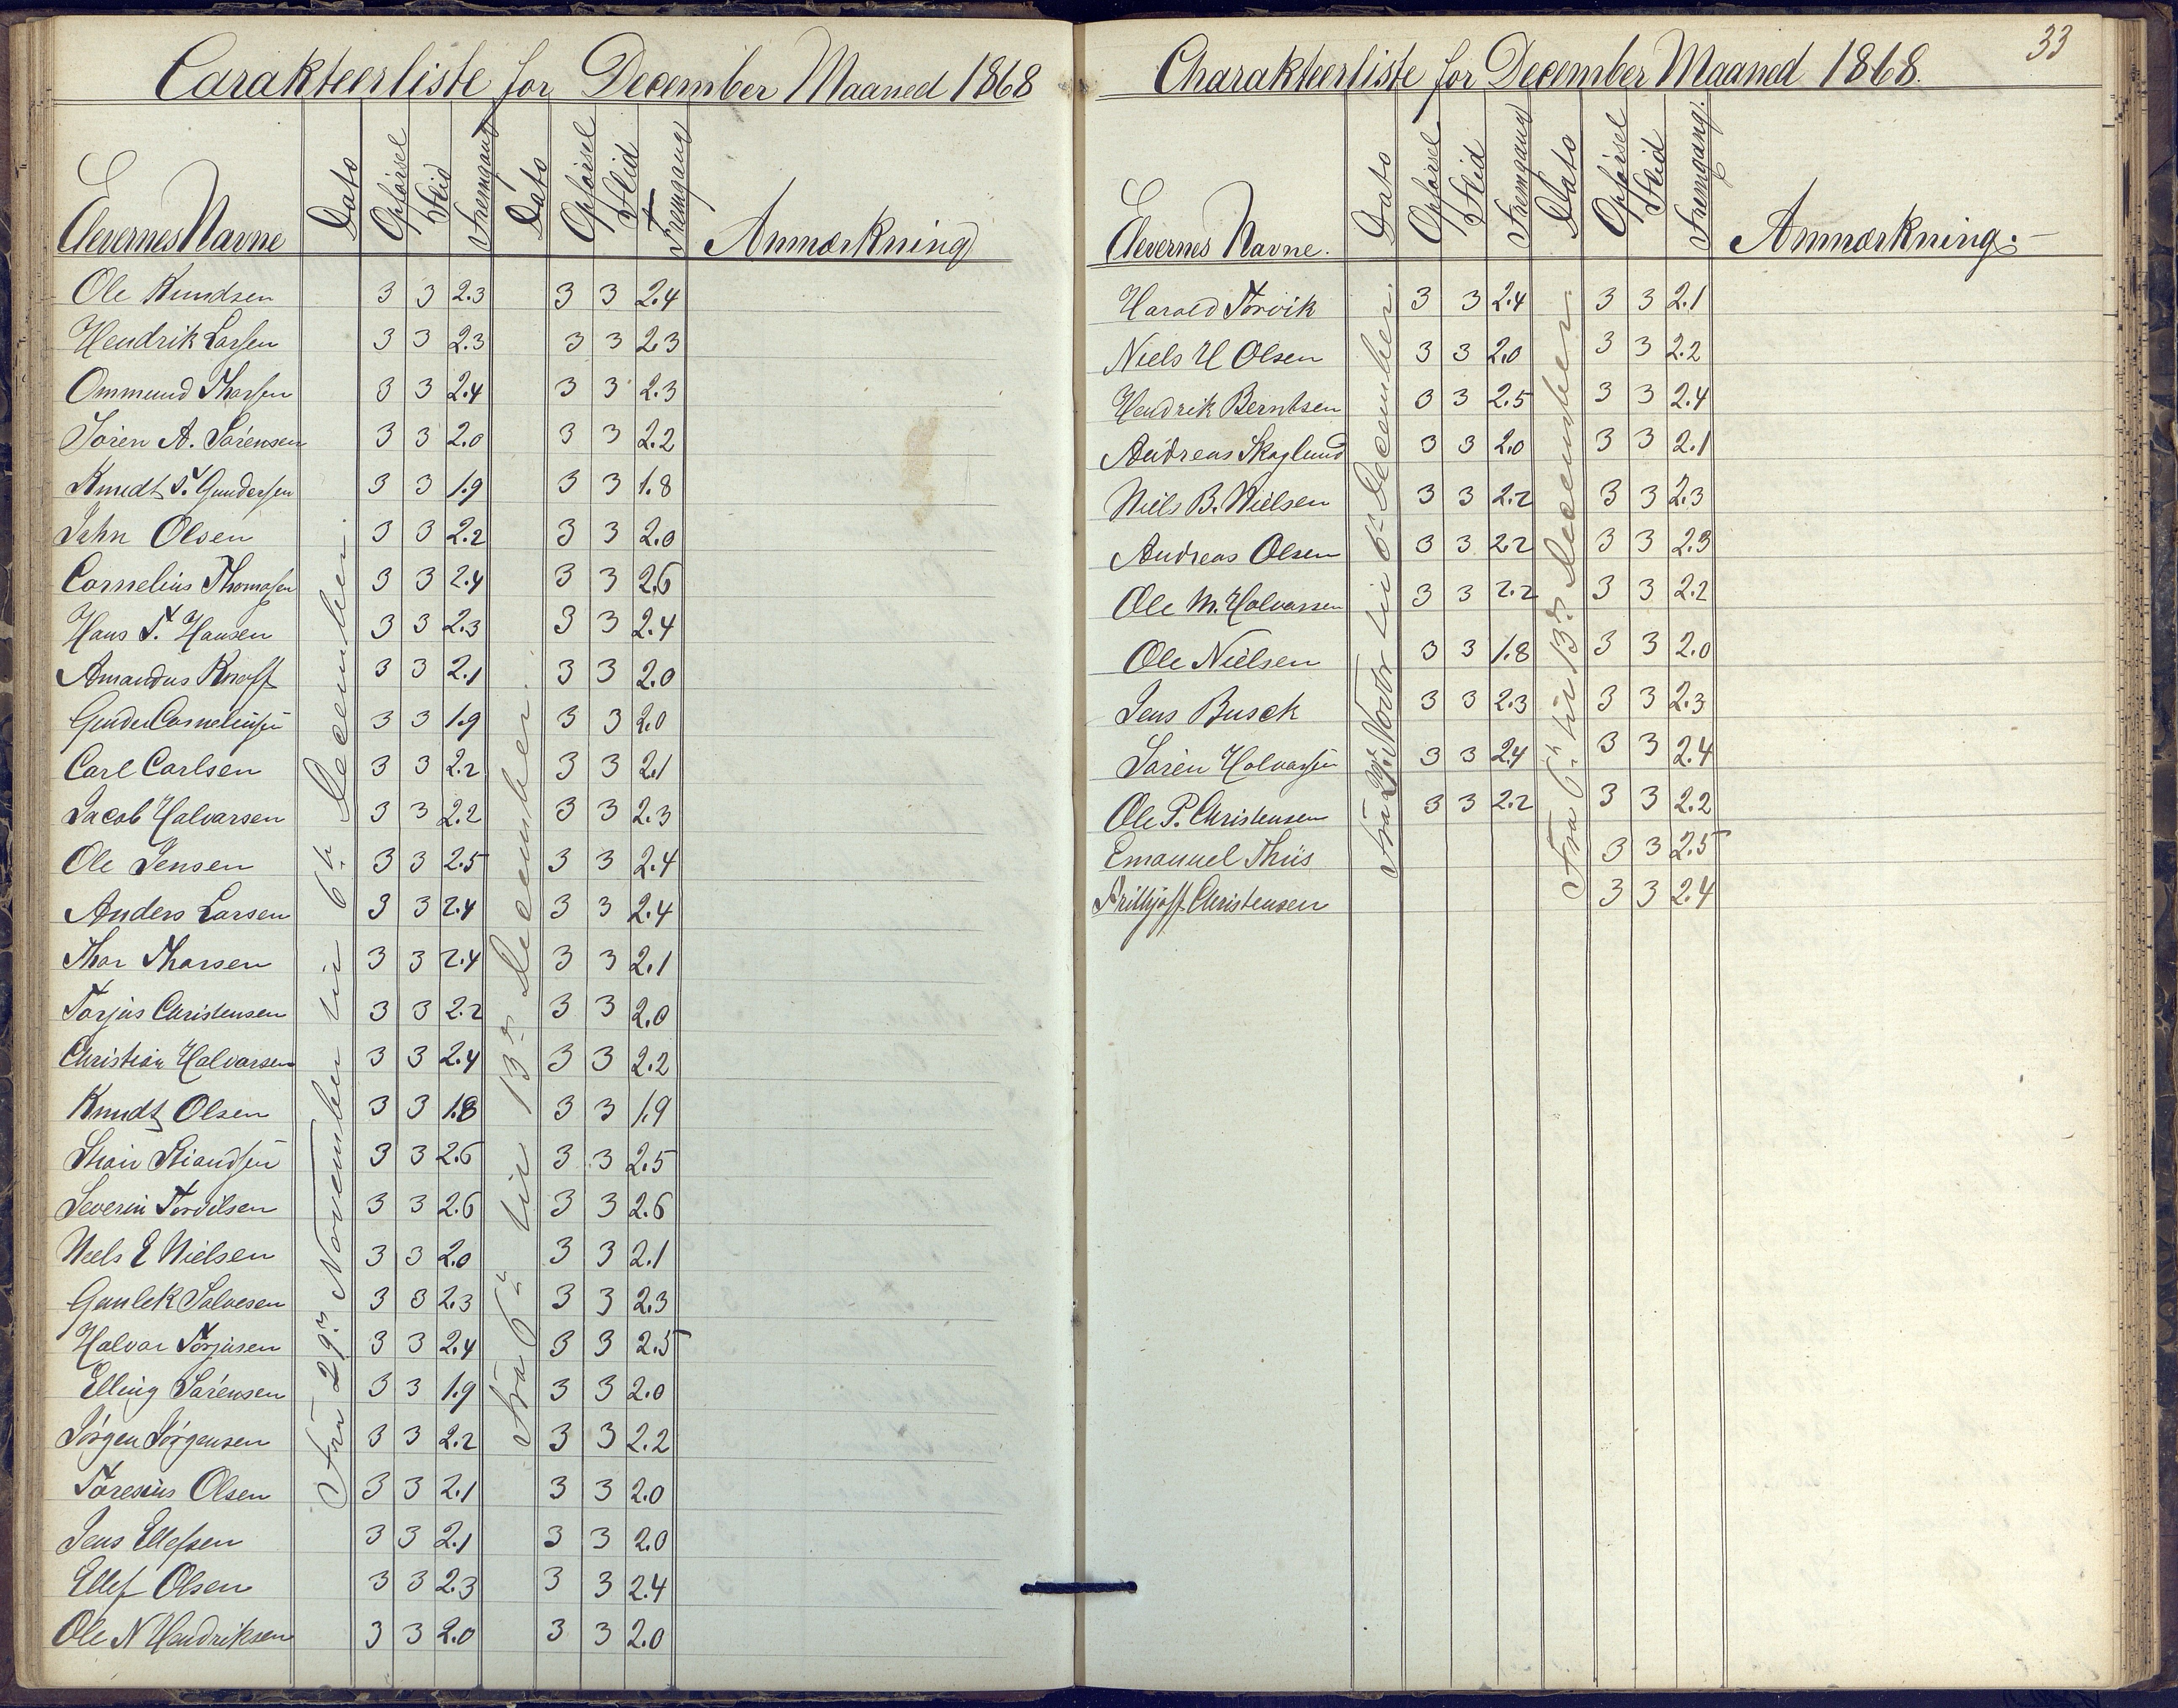 Carakteerliste for December Maaned 1868
Elevernes Navne Dato Opførsel Flid Fremgang Dato Opførsel Flid Fremgang Anmærkning
Fra 29de November til 6te December.
Fra 6te til 13de December.
Ole Knudsen 3 3 2.3 3 3 2.4
Hendrik Larsen 3 3 2.3 3 3 2.3
Ommund Tharsen 3 3 2.4 3 3 2.3
Søren A. Sørensen 3 3 2.0 3 3 2.2
Knudt T. Gundersen 3 3 1.9 3 3 1.8
John Olsen 3 3 2.2 3 3 2.0
Cornelius Thomasen 3 3 2.4 3 3 2.6
Hans T. Hansen 3 3 2.3 3 3 2.4
Amandus Knoff 3 3 2.1 3 3 2.0
Gunder Corneliusen 3 3 1.9 3 3 2.0
Carl Carlsen 3 3 2.2 3 3 2.1
Jacob Halvarsen 3 3 2.2 3 3 2.3
Ole Jensen 3 3 2.5 3 3 2.4
Anders Larsen 3 3 2.4 3 3 2.4
Thor Tharsen 3 3 2.4 3 3 2.1
Torjus Christensen 3 3 2.2 3 3 2.0
Christian Halvarsen 3 3 2.4 3 3 2.2
Knudt Olsen 3 3 1.8 3 3 1.9
3 3 2.6 3 3 2.5
Severin Tordilsen 3 3 2.6 3 3 2.6
Niels E Nielsen 3 3 2.0 3 3 2.1
Gunlek Salvesen 3 3 2.3 3 3 2.3
Halvor Torjusen 3 3 2.4 3 3 2.5
Elling Sørensen 3 3 1.9 3 3 2.0
Jørgen Jørgensen 3 3 2.2 3 3 2.2
Toresius Olsen 3 3 2.1 3 3 2.0
Jens Ellefsen 3 3 2.1 3 3 2.0
Ellef Olsen 3 3 2.3 3 3 2.4
Ole N Hendriksen 3 3 2.0 3 3 2.0
33
Charakteerliste for December Maaned 1868.
Elevernes Navne. Dato Opførsel Flid Fremgang Dato Opførsel Flid Fremgang. Anmærkning.
Fra 29de Novbr til 6te December.
Fra 6te til 13de December.
Harald Torvik 3 3 2.4 3 3 2.1
Niels H Olsen 3 3 2.0 3 3 2.2
Hendrik Berntsen 3 3 2.5 3 3 2.4
Andreas Skoglund 3 3 2.0 3 3 2.1
Niels B. Nielsen 3 3 2.2 3 3 2.3
Andreas Olsen 3 3 2.2 3 3 2.3
Ole M. Halvarsen 3 3 2.2 3 3 2.2
Ole Nielsen 3 3 1.8 3 3 2.0
Jens Busck 3 3 2.3 3 3 2.3
Søren Halvarsen 3 3 2.4 3 3 2.4
Ole P. Christensen 3 3 2.2 3 3 2.2
Emanuel Thiis 3 3 2.5
Frithjoff Christensen 3 3 2.4